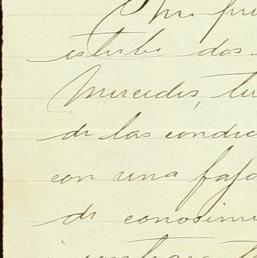 Mi pri
estube dos
Mercedes, tu
de las condic
con una faja
de conosimi